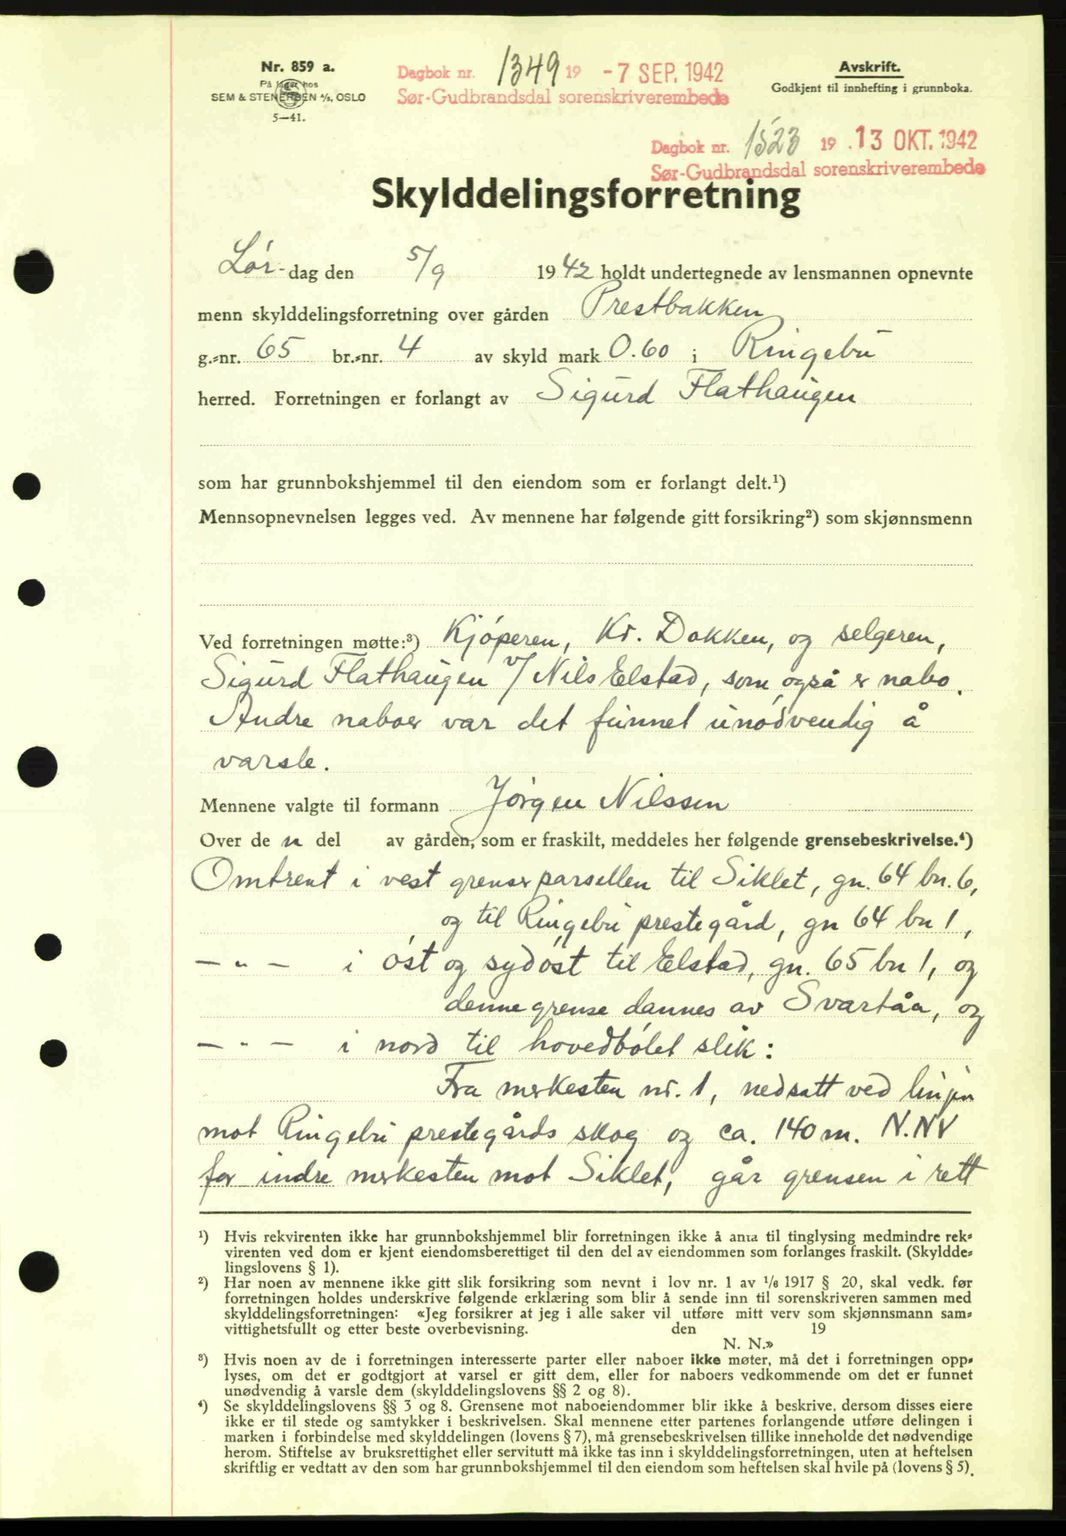 Nr. 859 a.
På lager hos
SEM & STENERSEN A/S, OSLO
5—41.
Dagbok nr. 1349 19 -7 SEP. 1942
Sør-Gudbrandsdal sorenskriverembede
Avskrift.
Godkjent til innhefting i grunnboka.
Dagbok nr. 1523 19 .13 OKT. 1942
Sør-Gudbrandsdal sorenskriverembede
Skylddelingsforretning
Lør- dag den 5/9 1942 holdt undertegnede av lensmannen opnevnte
menn skylddelingsforretning over gården Prestbakken
g.-nr. 65 br.-nr. 4 av skyld mark 0.60 i Ringebu
herred. Forretningen er forlangt av Sigurd Flathaugen
som har grunnbokshjemmel til den eiendom som er forlangt delt.¹)
Mennsopnevnelsen legges ved. Av mennene har følgende gitt forsikring²) som skjønnsmenn
Ved forretningen møtte:³) Kjøperen, Kr. Dokken, og selgeren,
Sigurd Flathaugen v/ Nils Elstad, som også er nabo.
Andre naboer var det funnet unødvendig å
varsle.
Mennene valgte til formann Jørgen Nilssen
Over de n del av gården, som er fraskilt, meddeles her følgende grensebeskrivelse.⁴)
Omtrent i vest grenser parsellen til Siklet, gn. 64 bn. 6,
og til Ringebu prestegård, gn 64 bn 1,
— " — i øst og sydøst til Elstad, gn. 65 bn 1, og
denne grense dannes av Svartåa, og
— " — i nord til hovedbølet slik:
Fra merkesten nr. 1, nedsatt ved linjen
mot Ringebu prestegårds skog og ca. 140 m. N.NV
for indre merkesten mot Siklet, går grensen i rett
¹) Hvis rekvirenten ikke har grunnbokshjemmel blir forretningen ikke å anta til tinglysing medmindre rek-
virenten ved dom er kjent eiendomsberettiget til den del av eiendommen som forlanges fraskilt. (Skyldde-
lingslovens § 1).
²) Har noen av mennene ikke gitt slik forsikring som nevnt i lov nr. 1 av 1/6 1917 § 20, skal vedk. før
forretningen holdes underskrive følgende erklæring som blir å sende inn til sorenskriveren sammen med
skylddelingsforretningen: «Jeg forsikrer at jeg i alle saker vil utføre mitt verv som skjønnsmann sam-
vittighetsfullt og etter beste overbevisning. den 19
N. N.»
³) Hvis noen av de i forretningen interesserte parter eller naboer ikke møter, må det i forretningen opp-
lyses, om det er godtgjort at varsel er gitt dem, eller for naboers vedkommende om det er funnet
unødvendig å varsle dem (skylddelingslovens §§ 2 og 8).
⁴) Se skylddelingslovens §§ 3 og 8. Grensene mot naboeiendommer blir ikke å beskrive, dersom disses eiere
ikke er til stede og samtykker i beskrivelsen. Skal mennene etter partenes forlangende utføre delingen i
marken i forbindelse med skylddelingen (lovens § 7), må grensebeskrivelsen tillike inneholde det nødvendige
herom. Stiftelse av bruksrettighet eller servitutt må ikke tas inn i skylddelingsforretningen, uten at heftelsen
skriftlig er vedtatt av den som har grunnbokshjemmel til den eiendom som heftelsen skal hvile på (lovens § 5).